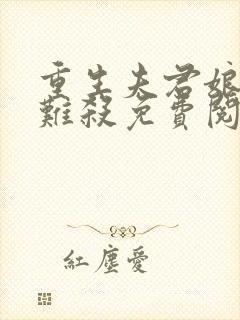 重生夫君娘
難殺免費閱
紅塵愛